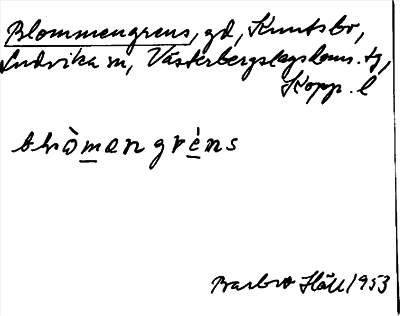 Blommengrens, gd, Knutsbo,
Ludvika sn, Västerbergslags doms. tg,
Kopp. l
blὼmangréns
Barbro Häll 1953